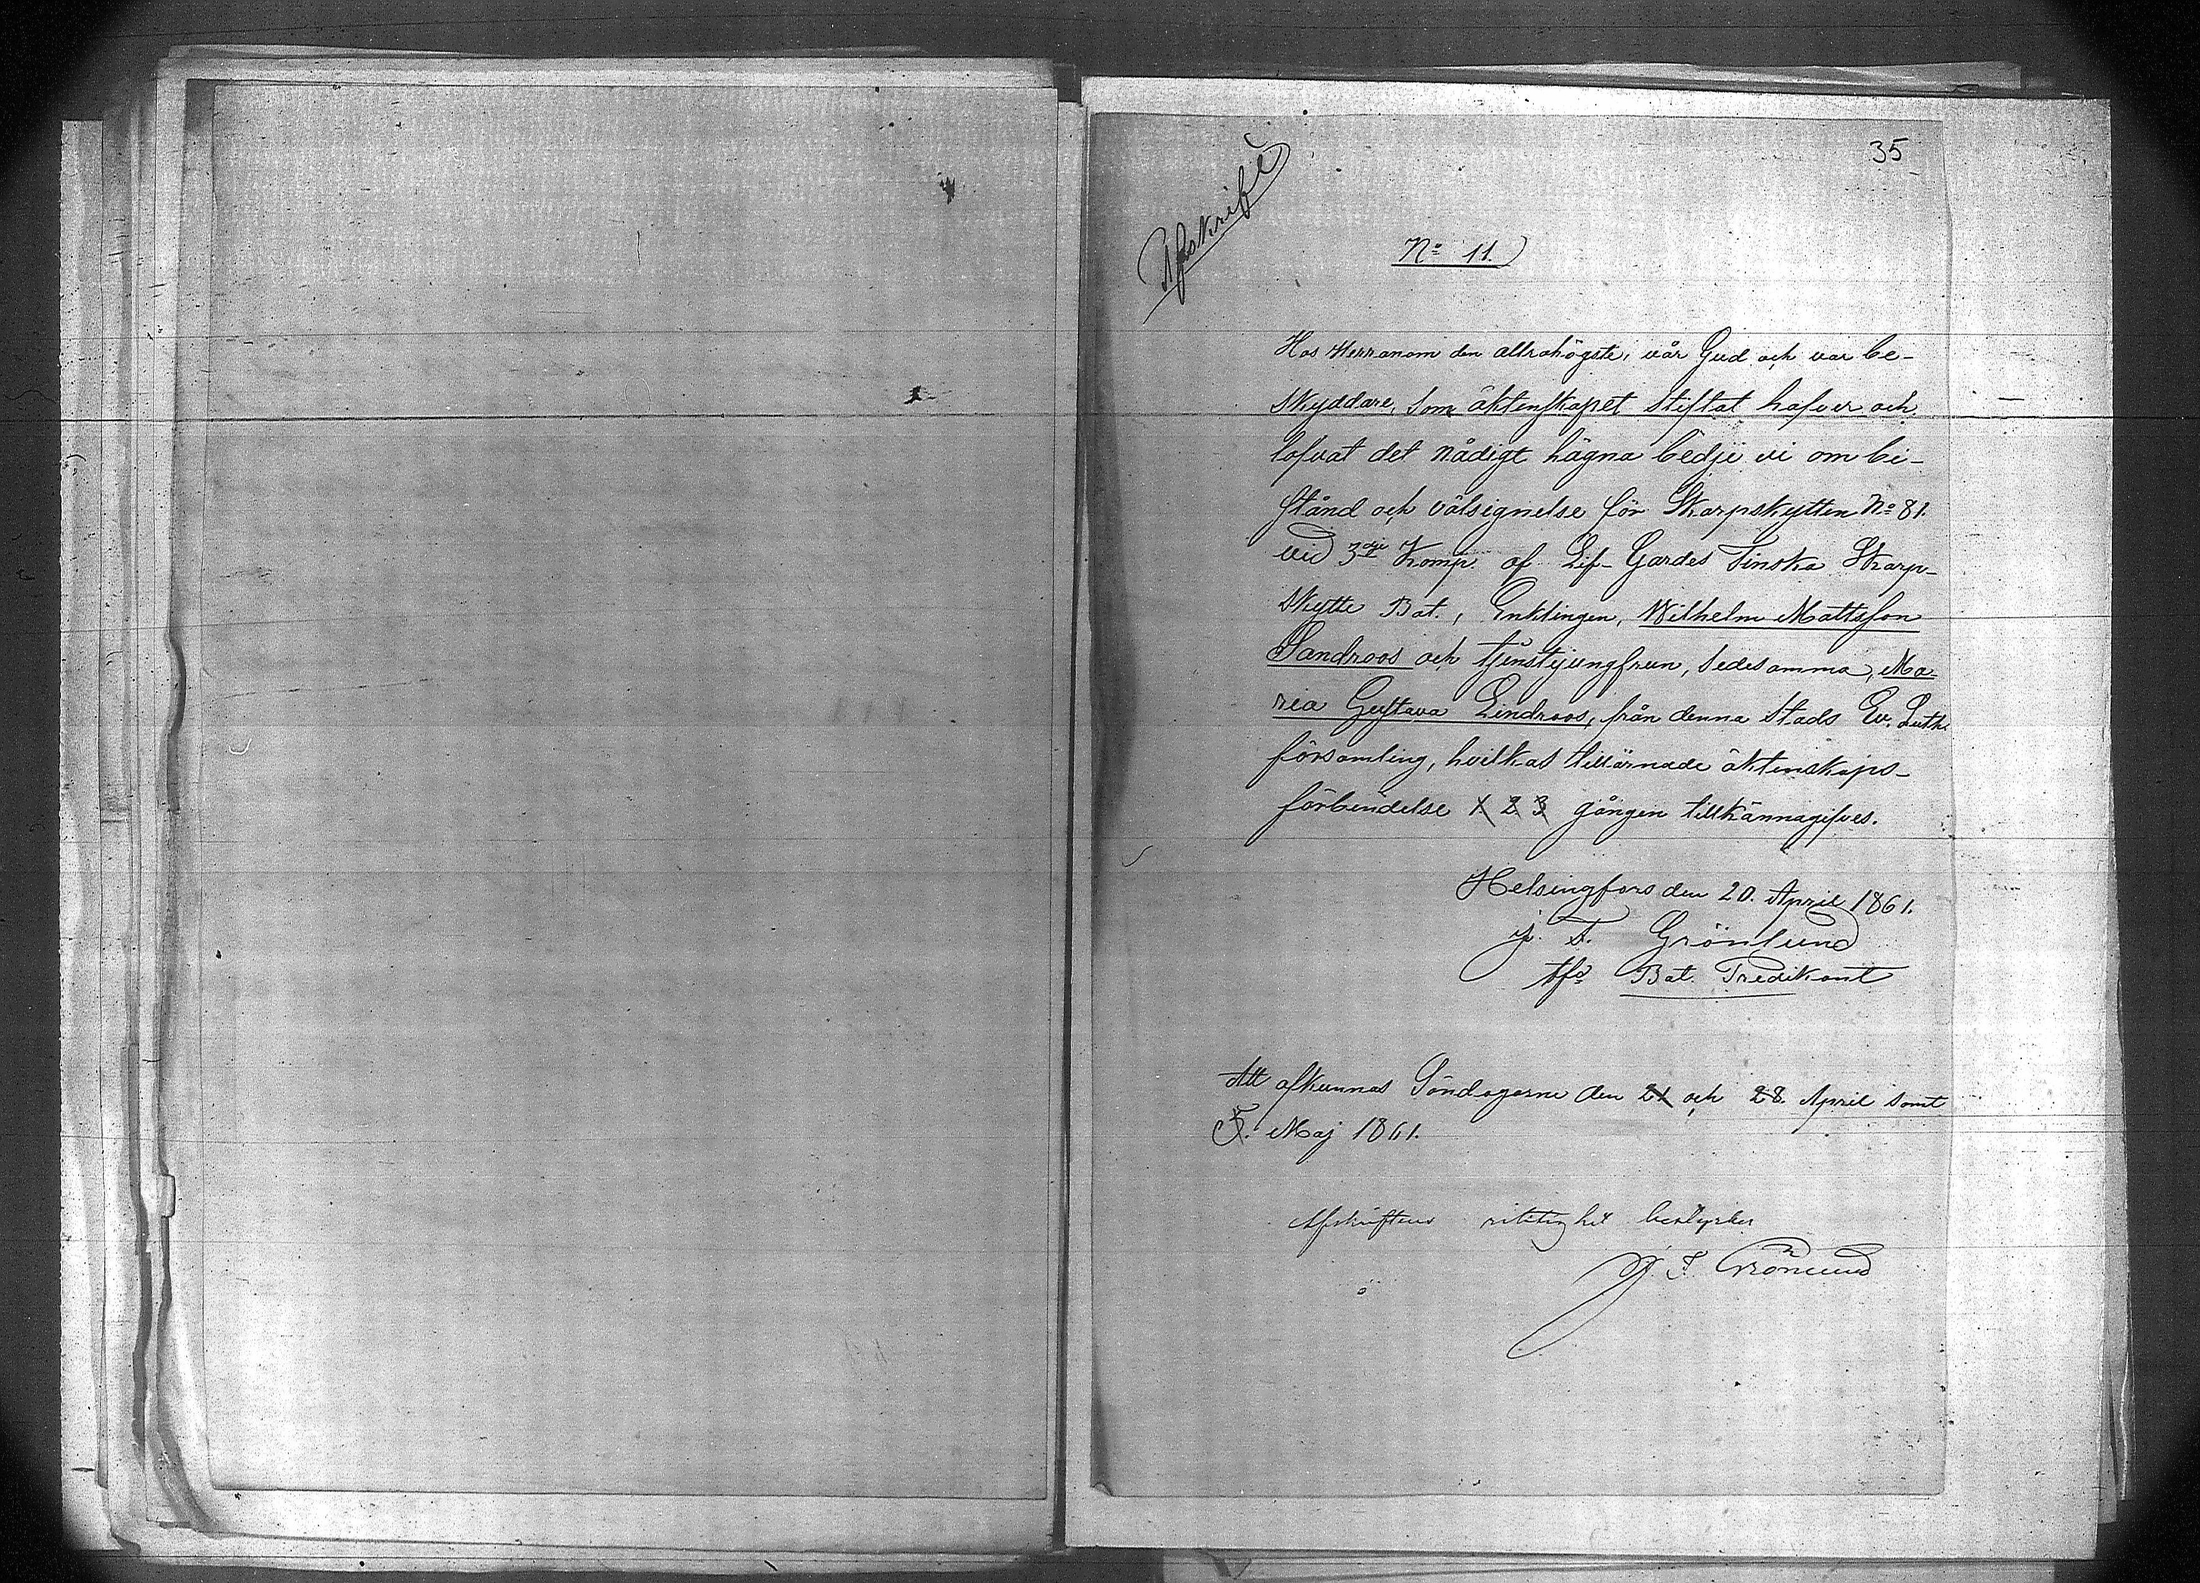 35
Afskrift
No 11.
Hos Herranom den allrahögste, vår Gud och vår be-
skyddare, som äktenskapet stiftat hafver och
lofvat det nådigt hägna bedje vi om bi-
stånd och välsignelse för Skarpskytten No 81.
vid 3dje Komp. af Lif-Gardes Finska Skarp-
skytte Bat., Enklingen, Wilhelm Mattsson
Sandroos och tjenstejungfrun, Sedesamma, Ma-
ria Gustava Lindroos, från denna stads Ev. Luth.
församling, hvilkas tillärnade äktenskaps-
förbindelse 1 2 3 gången tillkännagifves.
Helsingfors den 20. April 1861.
J. F. Grönlund
Bat. Predikant
Att afkunnas Söndagarne den 21 och 28. April samt
5. Maj 1861.
Afskriftens riktighet bestyrker
J. F. Grönlund